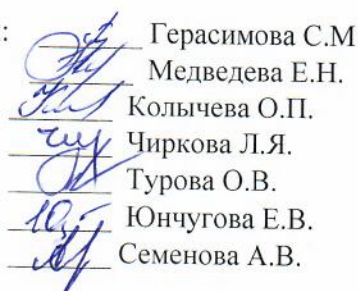 : Герасимова С.М
Медведева Е.Н.
Колычева О.П.
Чиркова Л.Я.
Турова О.В.
Юнчугова Е.В.
Семенова А.В.